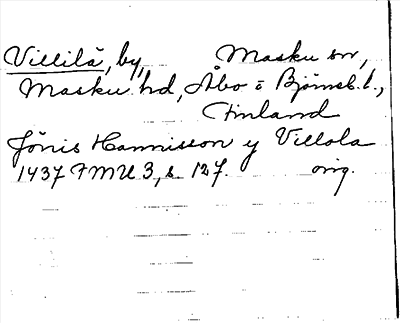 Villilä, by, Masku sn,
Masku hd, Åbo o Björneb. l.,
Finland
Jönis Hannisson y Villola
1437 FMU 3, s. 127. orig.